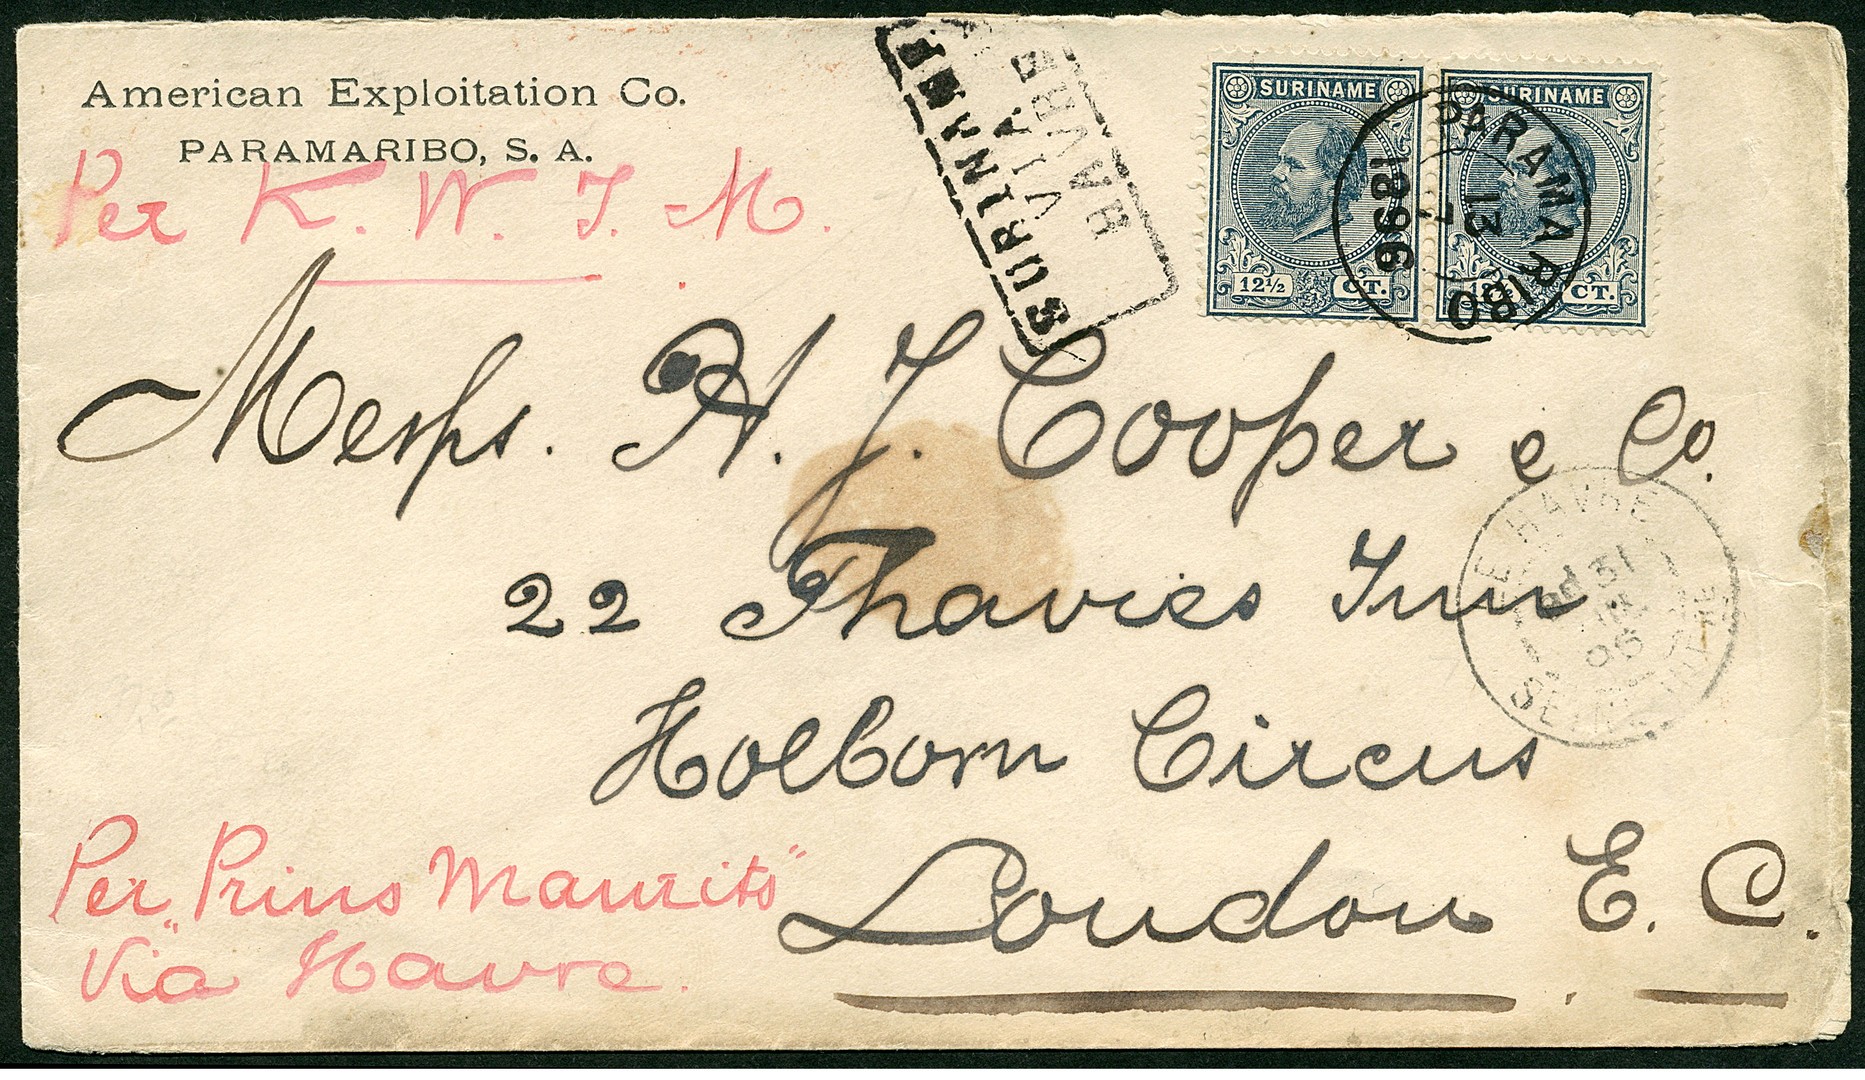 American Exploitation Co.
PARAMARIBO, S. A.
Per K. W. I. M.
SURINAME
VIA
HAVRE
SURINAME
12½ CT.
SURINAME
12½ CT.
PARAMARIBO
13
7
1896
Messrs. H. J. Cooper & Co.
22 Thavies Inn
Holborn Circus
London E. C.
LE HAVRE
31
96
SEINE
Per "Prins Maurits"
Via Havre.